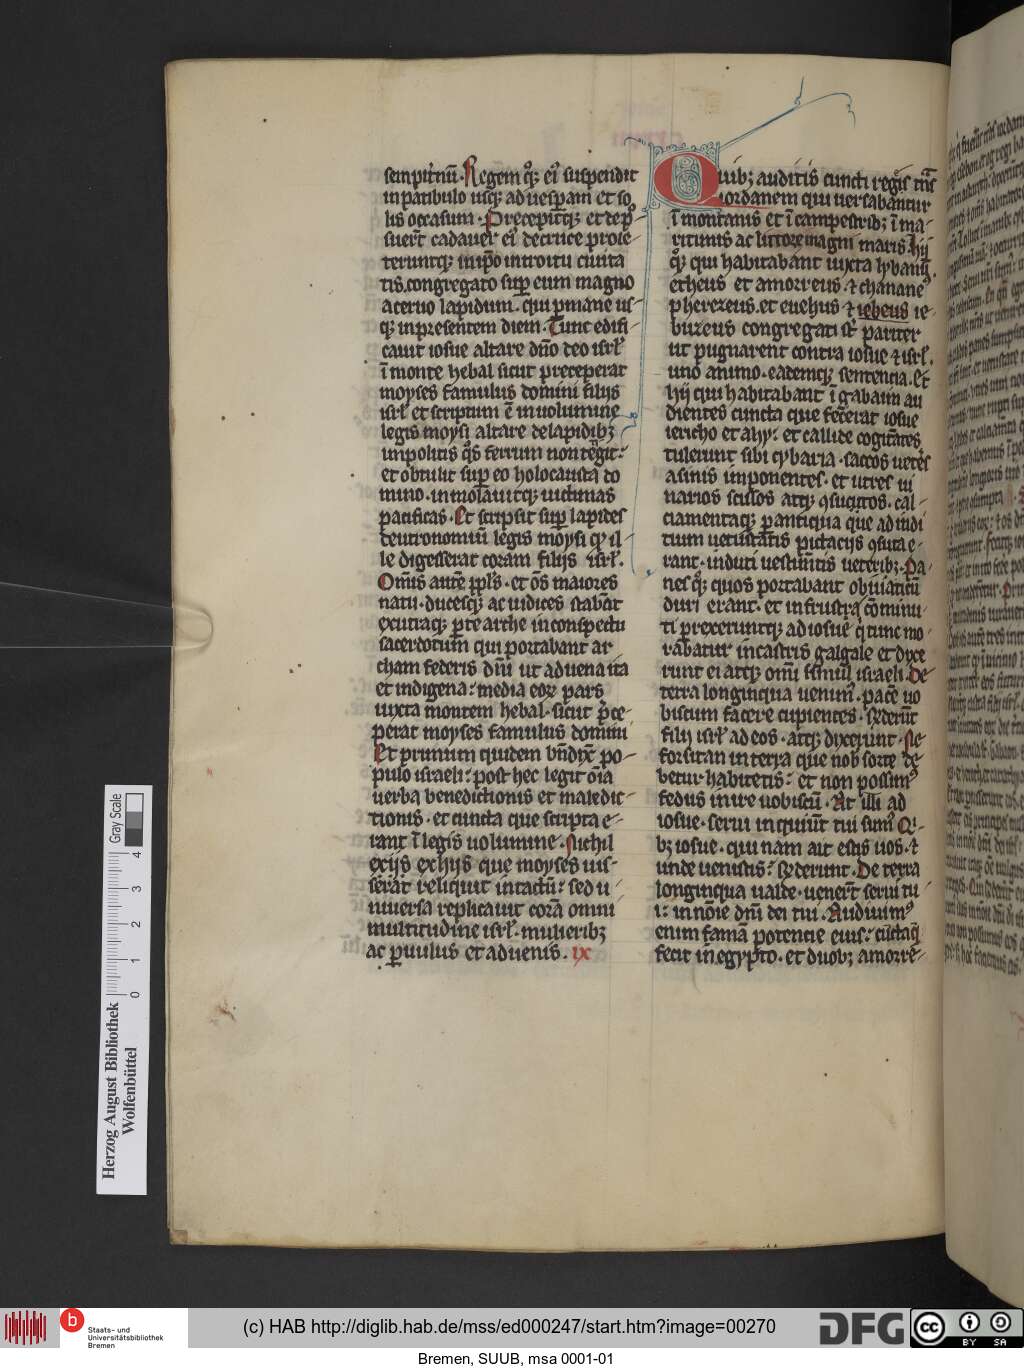 sempit̾nū. Regem qꝫ eiꝰ suspendit
in patibulo usqꝫ ad uesp̄am et so
lis occasum. Precepitqꝫ et depoˢ
suer̄t cadauer eiꝰ de cruce proie
teruntqꝫ in ip̄o introitu ciuita
tis. congregato sup̄ eum magno
aceruo lapidum. qui p̄mane us
qꝫ in presentem diem. Tunc edifi
cauit iosue altare dn̄o deo isrl̄
ī monte hebal sicut preceperat
moyses famulus domini filijs
isrl̄ et scriptum ē in uolumine
legis moysi altare de lapidibꝫ
inpolitis qͦs ferrum non tetigit.
et obtulit sup̄ eo holocausta do
mino. inmolauitqꝫ uictimas
pacificas. Et scripsit sup̄ lapides
deutronomiū legis moysi qd̄ il
le digesserat coram filijs isrl̄.
Omīs autē ppl̄s. et om̄s maiores
natu. ducesqꝫ ac iudices stabant
ex utraqꝫ parte arche in conspectu
sacerdotum qui portabant ar
cham federis dn̄i ut aduena ita
et indigena. media eoꝝ pars
iuxta montem hebal. sicut p̄ce
perat moyses famulus domini
Et primum quidem bn̄dix̄ po
pulo israeli. post hec legit om̄ia
uerba benedictionis et maledic
tionis. et cuncta que scripta e
rant ī legis uolumine. Nichil
ex ijs ex hijs que moyses ius
serat reliquit intactū. sed u
niuersa replicauit corā omni
multitudine isrl̄. mulieribꝫ
ac p̄uulis et aduenis. ix
Quibꝫ auditis cuncti reges tn̄s
iordanem qui uersabantur
ī montanis et ī campestribꝫ ī ma
ritimis ac littore magni maris. hij
qꝫ qui habitabant iuxta lybanū
etheus et amorreus ⁊ chananeꝰ
pherezeus. et euehus ⁊ iebeus ie
buzeus congregati st̄ pariter
ut pugnarent contra iosue ⁊ isrl̄.
uno animo. eademqꝫ sentencia. Et
hij qui habitabant ī gabaun au
dientes cuncta que fecerat iosue
iericho et ahy. et callide cogitātes
tulerunt sibi cybaria. saccos ueteꝛs
asinis inponentes. et utres ui
narios scissos atqꝫ ꝯsutos. cal
ciamentaqꝫ p̄antiqua que ad indi
cium uetustatis pictacijs ꝯsuta e
rant. induti uestim̄tis ueteribꝫ. Pa
nes qꝫ quos portabant ob uiaticū
duri erant. et in frustra cōminu
ti p̄rexeruntqꝫ ad iosue q̇ tunc mo
rabatur in castris galgale et dixe
runt ei atqꝫ omī simul israeli. De
terra longinqua uenim̄. pacē uo
biscum facere cupientes. R̄derūt
filij isrl̄ ad eos. atqꝫ dixerunt. Ne
forsitan in terra que nob̄ sorte de
betur habitetis. et non possimꝰ
fedus inire uobiscū. At illi ad
iosue. serui inquiūt tui sumꝰ Qi
bꝫ iosue. qui nam ait estis uos. ⁊
unde uenistis. R̄derunt. De terra
longinqua ualde. uener̄t serui tu
i. in nōie dn̄i dei tui. Audiuimꝰ
enim famā potencie eius. cūctaqꝫ
fecit in egypto. et duobꝫ amorre
Herzog August Bibliothek
Wolfenbüttel
0 1 2 3 4
Gray Scale
b
Staats- und
Universitätsbibliothek
Bremen
(c) HAB http://diglib.hab.de/mss/ed000247/start.htm?image=00270
DFG
cc BY SA
Bremen, SUUB, msa 0001-01